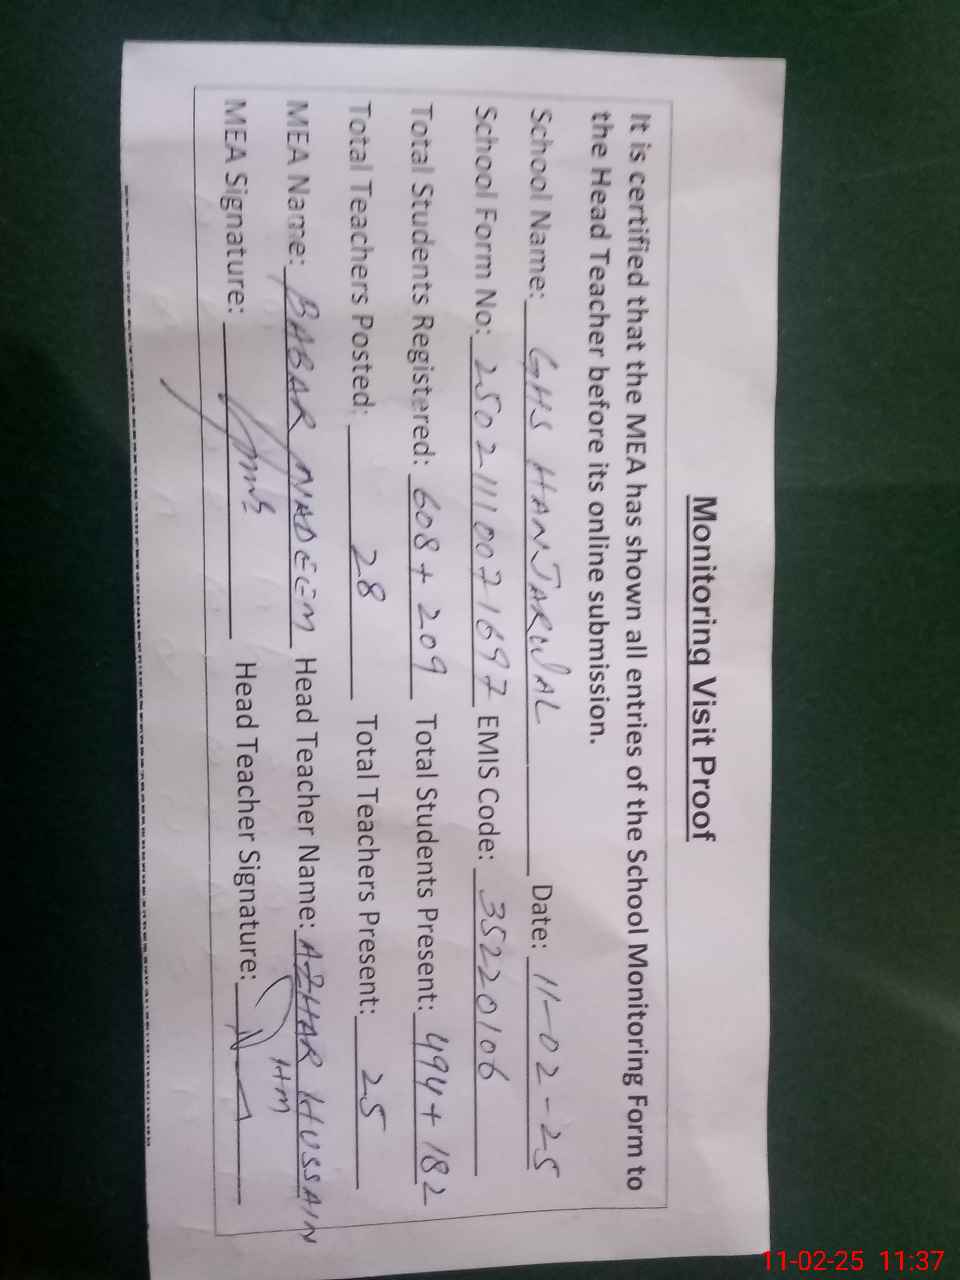 Monitoring Visit Proof
It is certified that the MEA has shown all entries of the School Monitoring Form to
the Head Teacher before its online submission.
School Name: GHS HANJARWAL Date: 11-02-25
School Form No: 25021110071697 EMIS Code: 35220106
Total Students Registered: 608 + 209 Total Students Present: 494 + 182
Total Teachers Posted: 28 Total Teachers Present: 25
MEA Name: BABAR NADEEM Head Teacher Name: AZHAR HUSSAIN
HM
MEA Signature: Head Teacher Signature:
11-02-25 11:37